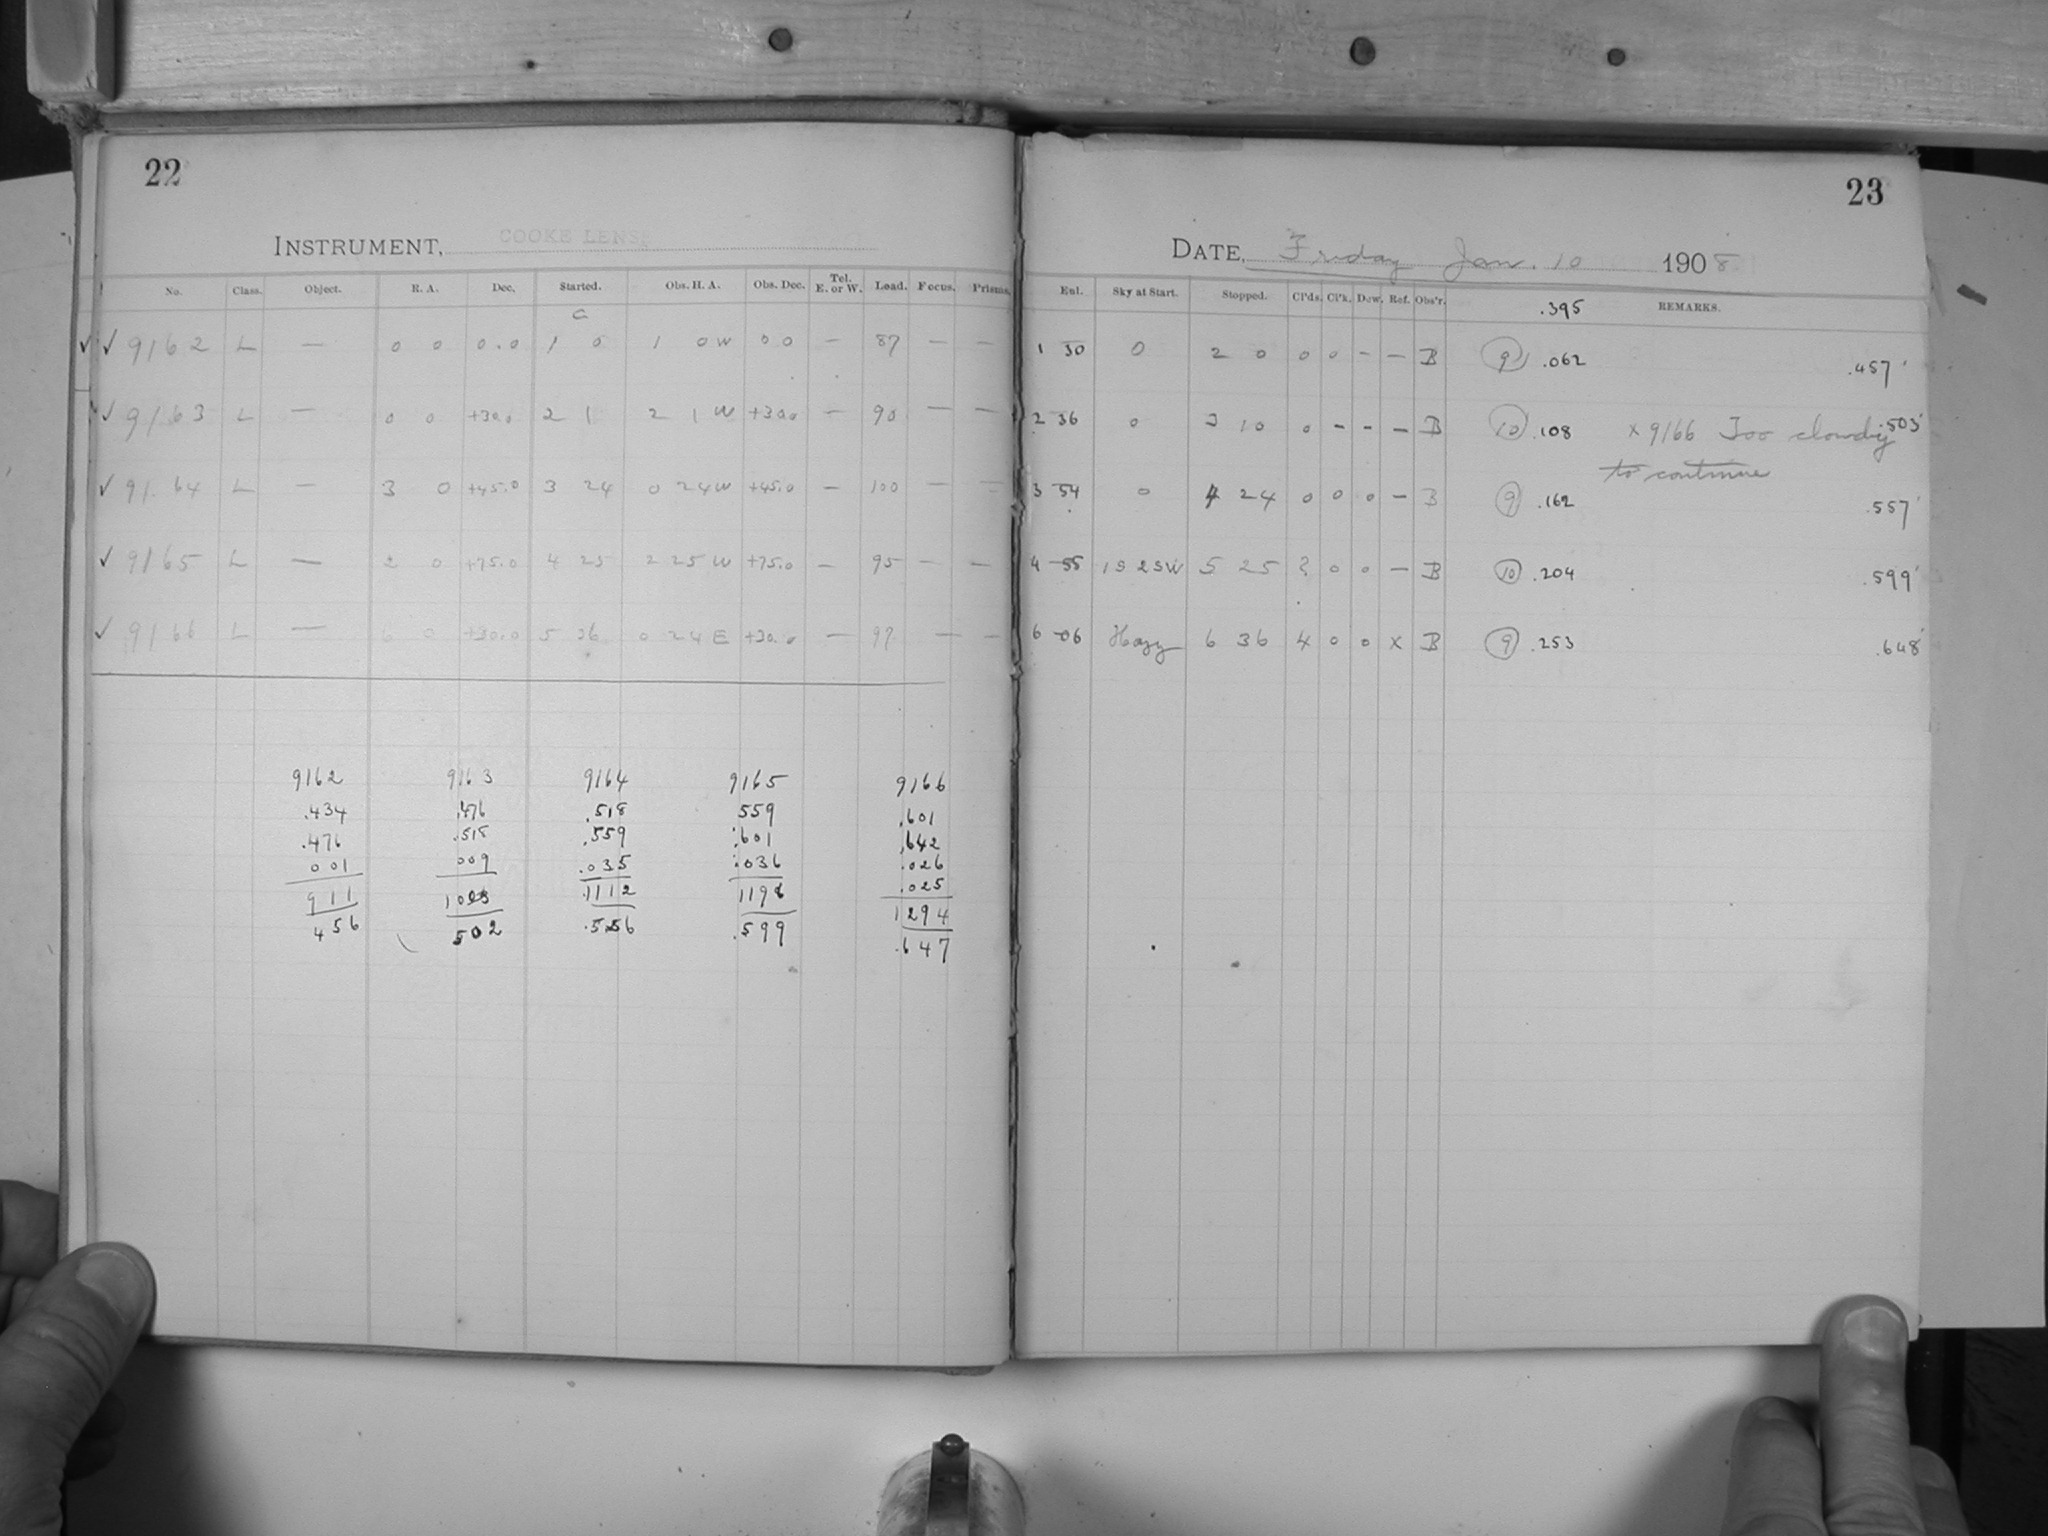 22
INSTRUMENT, COOKE LENS
No. Class. Object. R. A. Dec. Started. Obs. H. A. Obs. Dec. Tel. E. or W. Load. Focus. Prisms.
✓ ✓ 9162 L — 0 0 0.0 1 0 1 0 W 0 0 — 87 — —
✓ 9163 L — 0 0 +30.0 2 1 2 1 W +30.0 — 90 — —
✓ 9164 L — 3 0 +45.0 3 24 0 24 W +45.0 — 100 — —
✓ 9165 L — 2 0 +75.0 4 25 2 25 W +75.0 — 95 — —
✓ 9166 L — 6 0 +30.0 5 36 0 24 E +30.0 — 97 — —
9162 9163 9164 9165 9166
.434 .476 .518 559 .601
.476 .515 .559 .601 .642
001 009 .035 .036 .026
.025
911 .1112 1196 1294
456 502 .556 .599 .647
23
DATE, Friday Jan. 10 1908
Ent. Sky at Start. Stopped. Cl'ds. Cl'k. Dew. Ref. Obs'r. .395 REMARKS.
1 30 0 2 0 0 0 — — B 9 .062 .457
2 36 0 3 10 0 — — — B 10 .108 x 9166 Too cloudy .503
to continue
3 54 0 4 24 0 0 0 — B 9 .162 .557
4 55 1S 2SW 5 25 ? 0 0 — B 10 .204 .599
6 06 Hazy 6 36 4 0 0 x B 9 .253 .648